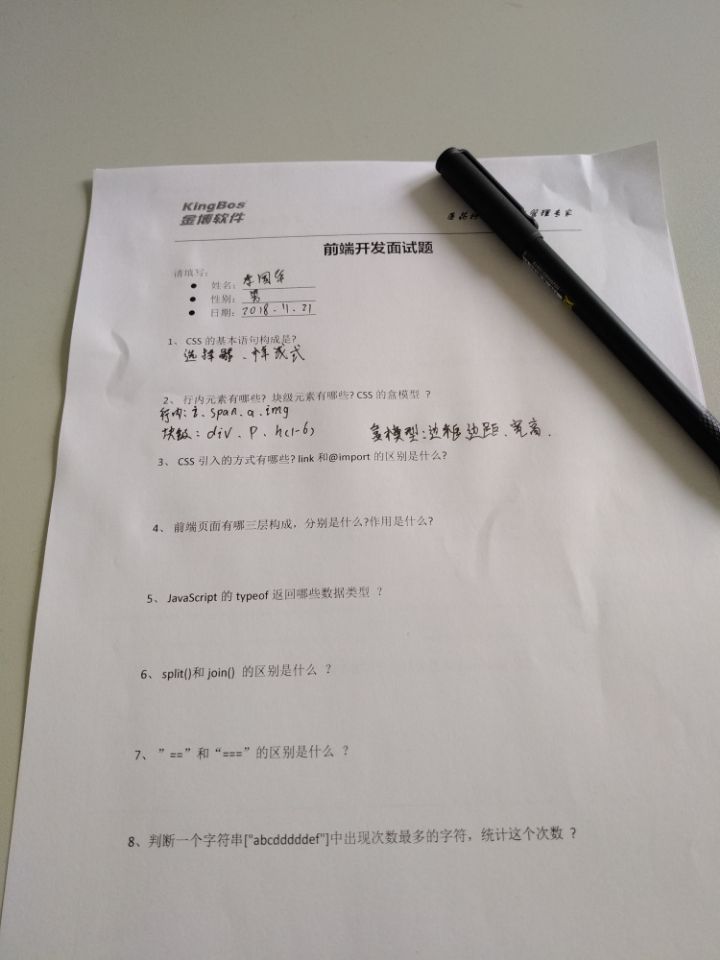 KingBos
金博软件
管理专家
前端开发面试题
请填写:
● 姓名: 李国华
● 性别: 男
● 日期: 2018.11.21
1、 CSS 的基本语句构成是?
选择器、样式
2、 行内元素有哪些? 块级元素有哪些? CSS 的盒模型 ?
行内: i、span、a、img
块级: div、P、h(1-6)
盒模型:边框边距、宽高.
3、 CSS 引入的方式有哪些? link 和@import 的区别是什么?
4、 前端页面有哪三层构成，分别是什么?作用是什么?
5、 JavaScript 的 typeof 返回哪些数据类型 ?
6、 split()和 join() 的区别是什么 ?
7、 ”==”和“===”的区别是什么 ?
8、判断一个字符串["abcdddddef"]中出现次数最多的字符，统计这个次数 ?